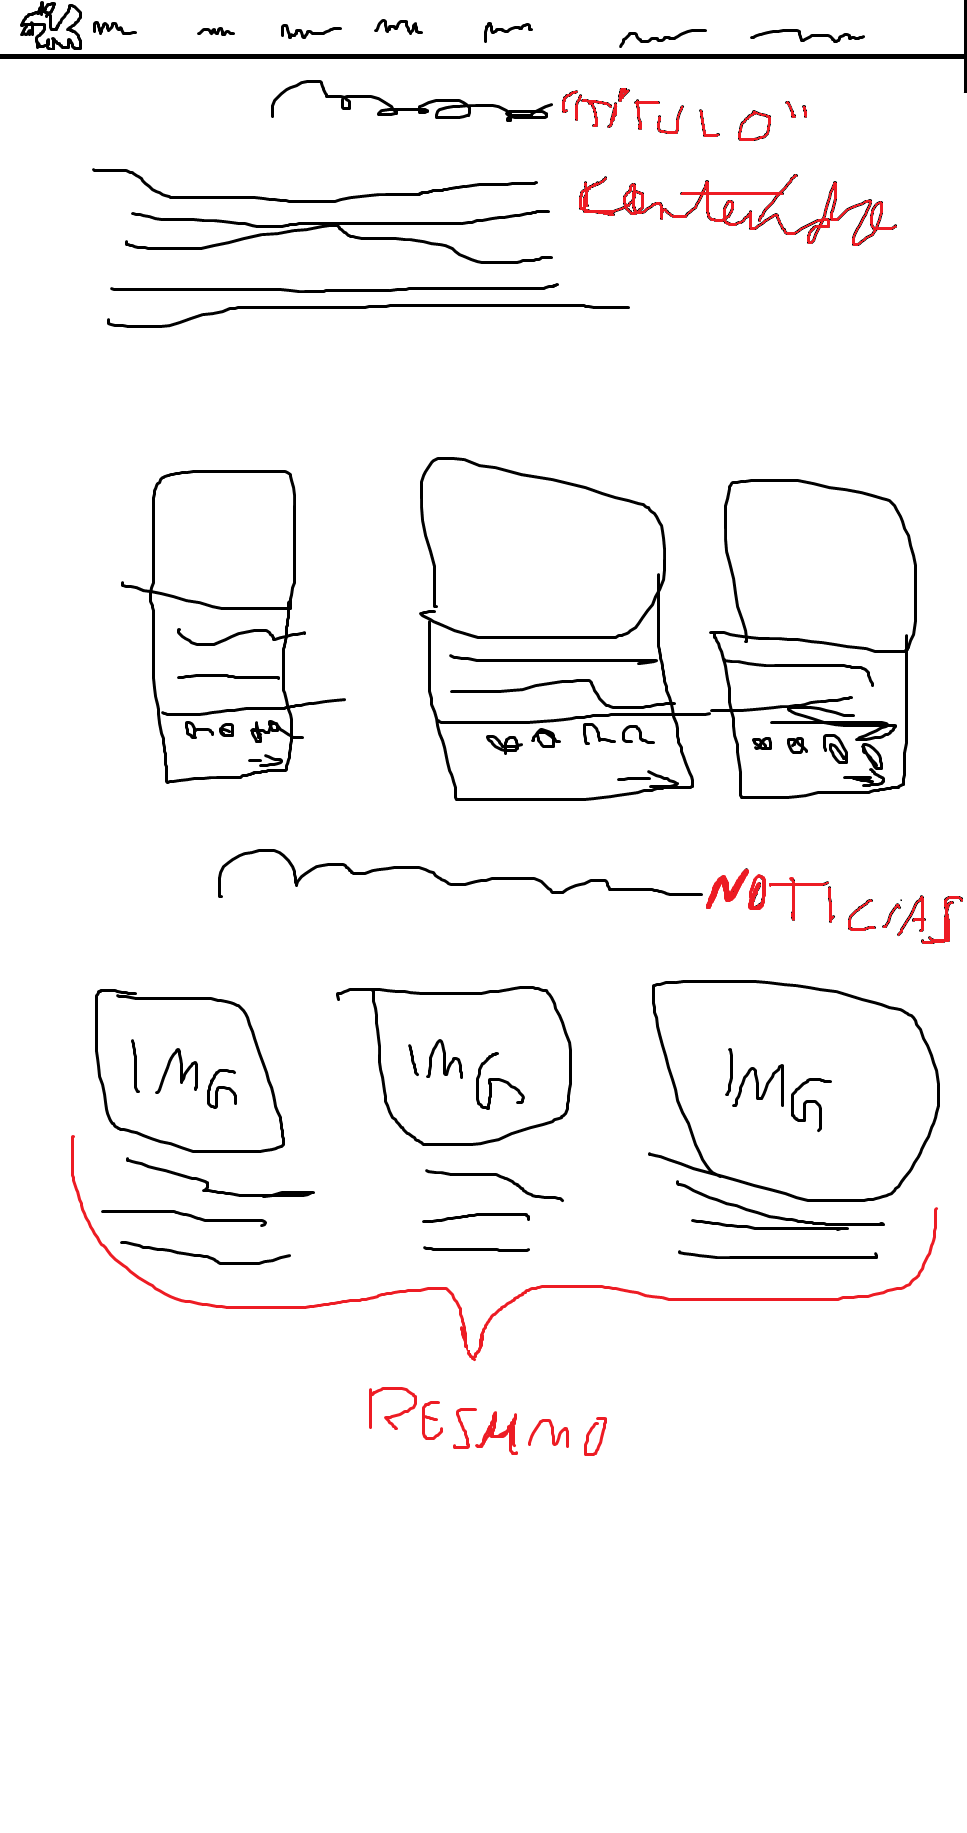 "TÍTULO"
Conteúdo
NOTICIAS
IMG IMG IMG
RESUMO